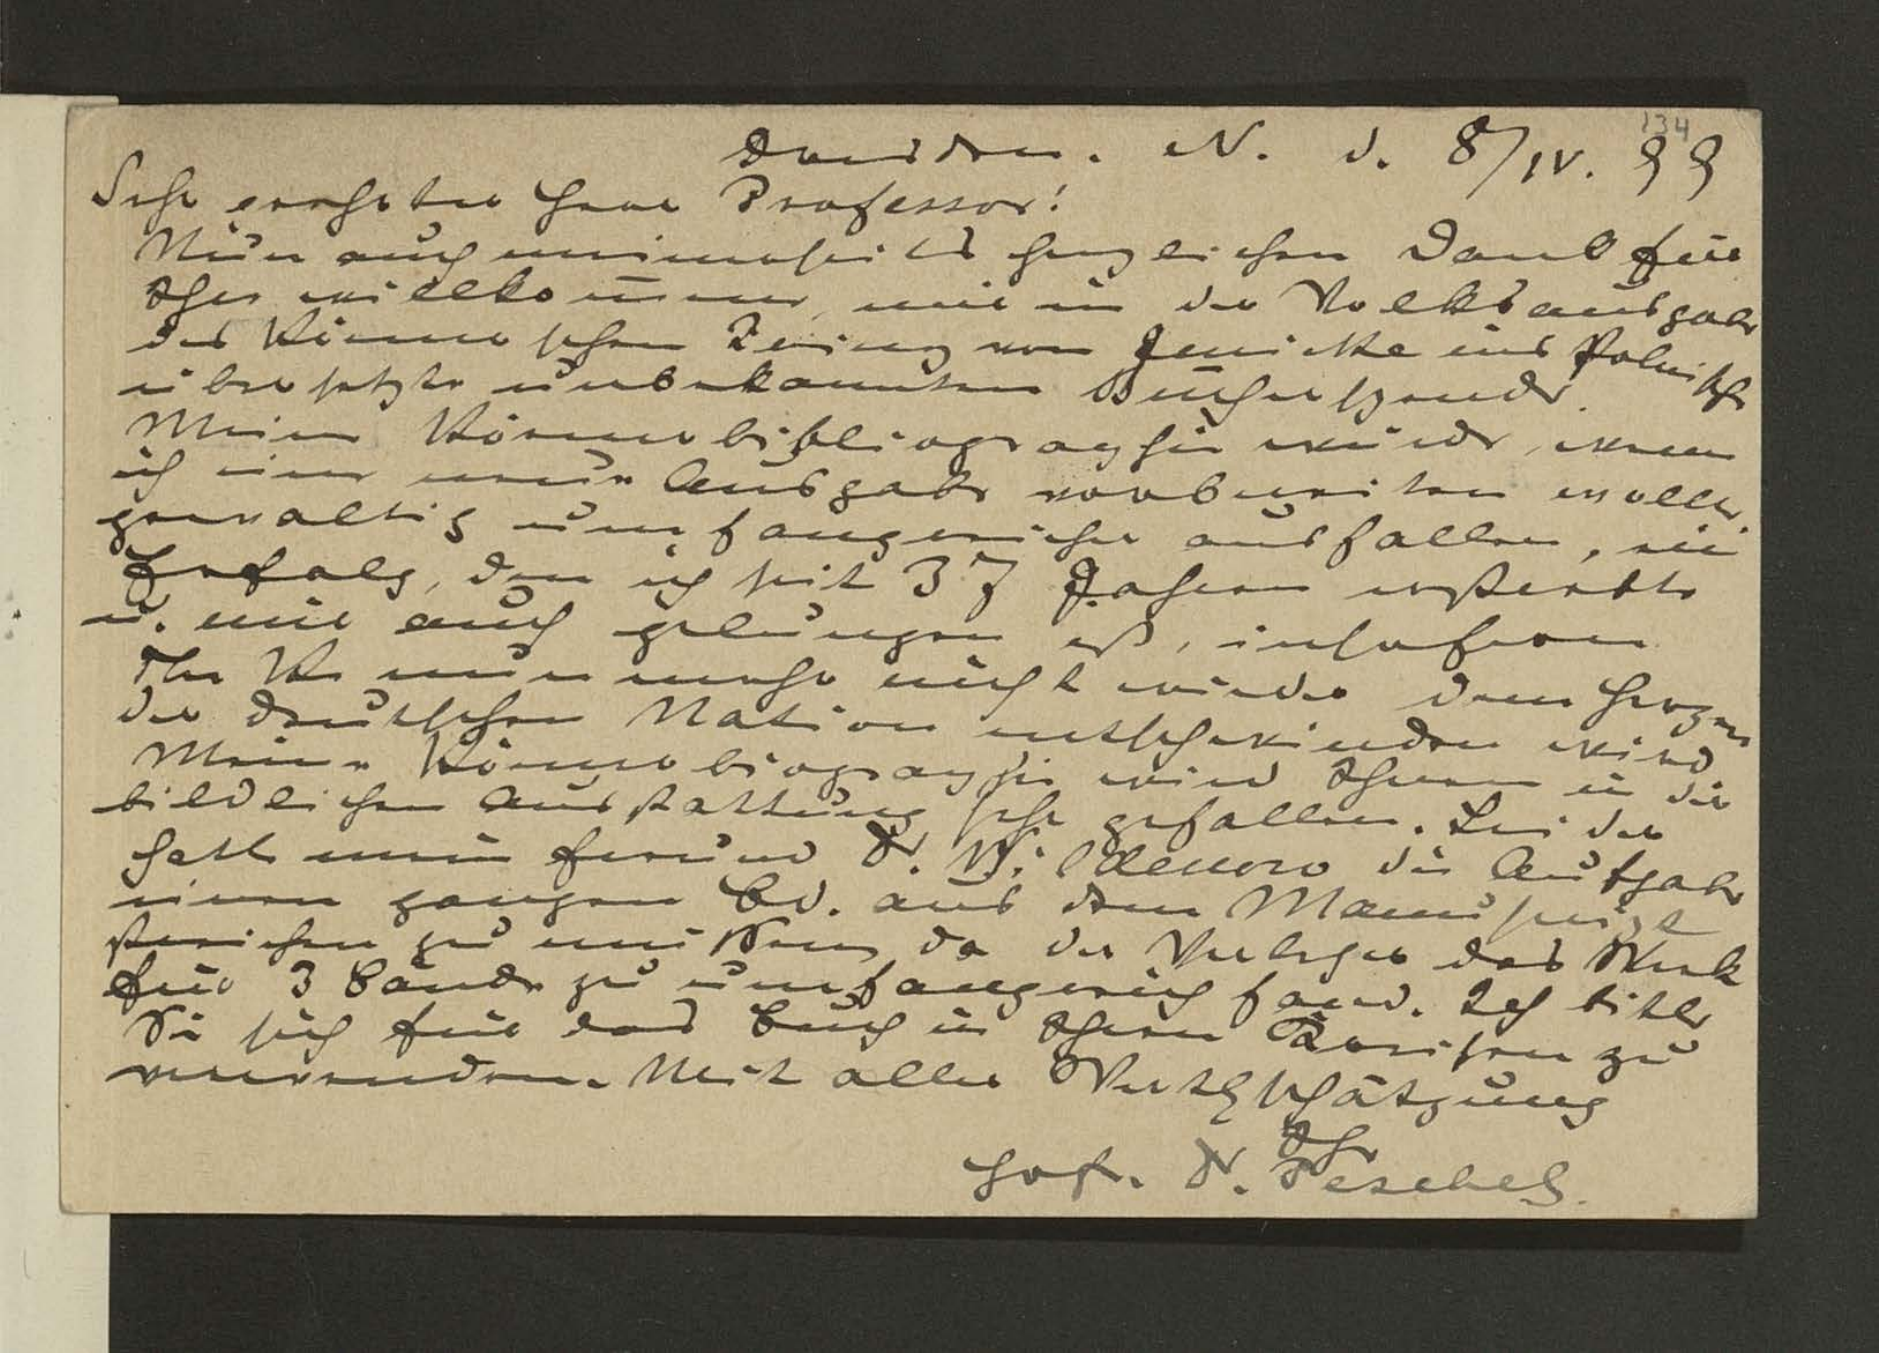 134
Dresden. N. d. 8/IV. 99
Sehr geehrter Herr Professor!
Nun auch meinerseits herzlichen Dank für
Ihre willkommene, mir in der Volksausgabe
des Körnerschen Zriny von Jenicke ins Polnische
übersetzte unbekannten Bücherspende.
Meine Körnerbibliographie würde, wenn
ich eine neue Ausgabe vorbereiten wollte,
gewaltig umfangreicher ausfallen, ein
Erfolg, den ich seit 37 Jahren erstrebte
u. mir auch gelungen ist, insofern
Th. K. nunmehr nicht wieder dem Herzen
der deutschen Nation entschwinden wird.
Meine Körnerbiographie wird Ihnen in der
bildlichen Ausstattung sehr gefallen. Leider
hatte mein Freund Dr. Wildenow die Aufgabe
einen ganzen Bd. aus dem Manuskript
streichen zu müssen, da der Verleger das Werk
für 3 Bände zu umfangreich fand. Ich bitte
Sie sich für das Buch in Ihren Kreisen zu
verwenden. Mit aller Werthschätzung
Ihr
Hofr. Dr. Peschel.